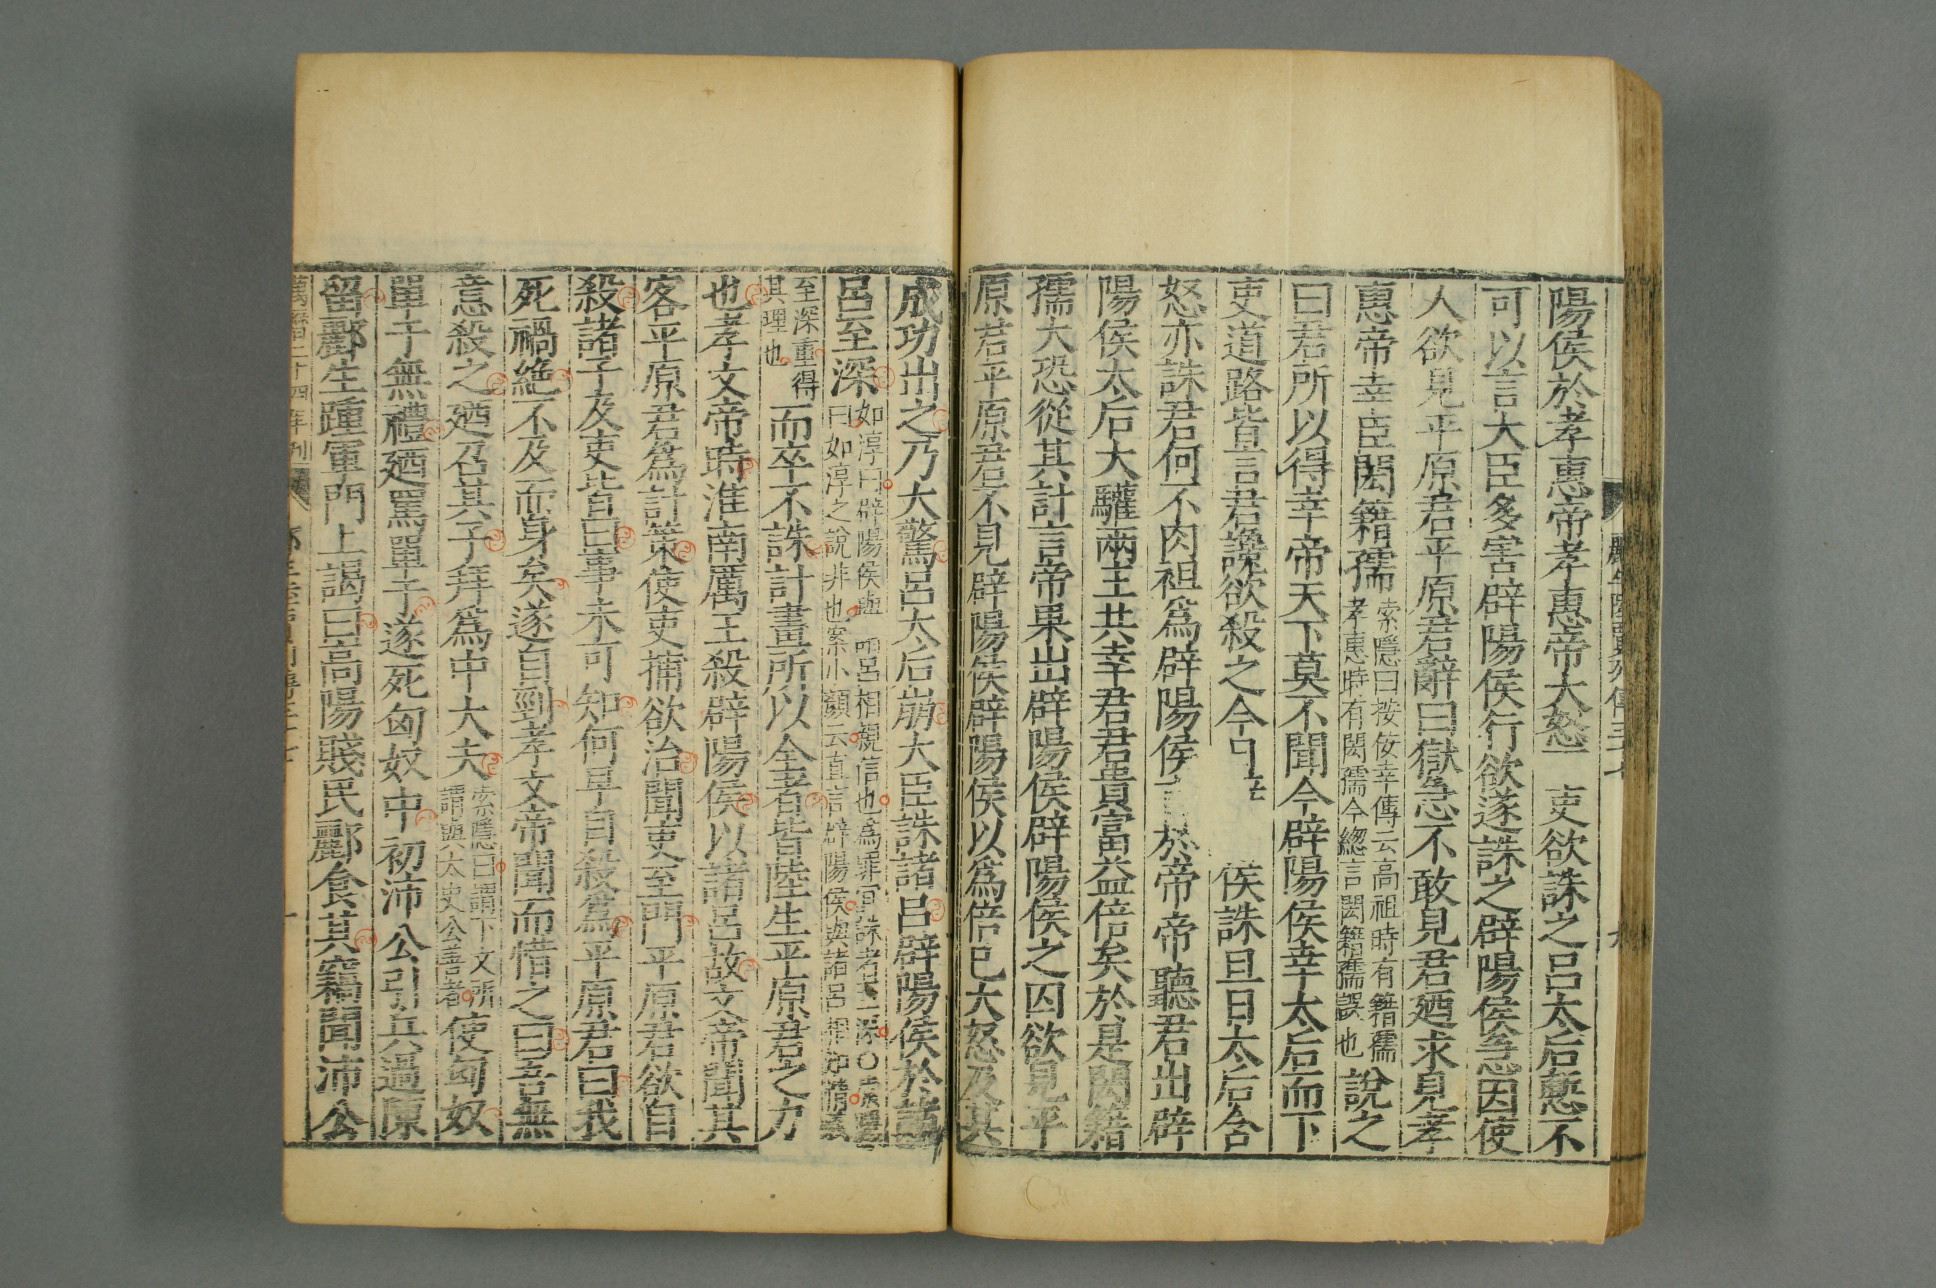 陽侯於孝惠帝孝惠帝大怒 吏欲誅之呂太后慙不
可以言大臣多害辟陽侯行欲遂誅之辟陽侯急因使
人欲見平原君平原君辭曰獄急不敢見君廼求見孝
惠帝幸臣閎籍孺索隱曰按佞幸傳云高祖時有籍孺孝惠時有閎孺今總言閎籍孺誤也說之
曰君所以得幸帝天下莫不聞今辟陽侯幸太后而下
吏道路皆言君讒欲殺之今 侯誅旦日太后含
怒亦誅君何不肉袒爲辟陽侯 於帝帝聽君出辟
陽侯太后大驩兩主共幸君君貴富益倍矣於是閎籍
孺大恐從其計言帝果出辟陽侯辟陽侯之囚欲見平
原君平原君不見辟陽侯辟陽侯以爲倍已大怒及其
成功出之乃大驚呂太后崩大臣誅諸呂辟陽侯於諸
呂至深如淳曰辟陽侯與諸呂相親信也爲罪宜誅者至深○索隱曰如淳之說非也案小顏云直言辟陽侯與諸呂相知情義
至深重得其理也而卒不誅計畫所以全者皆陸生平原君之力
也孝文帝時淮南厲王殺辟陽侯以諸呂故文帝聞其
客平原君爲計策使吏捕欲治聞吏至門平原君欲自
殺諸子及吏皆曰事未可知何早自殺爲平原君曰我
死禍絶不及而身矣遂自剄孝文帝聞而惜之曰吾無
意殺之廼召其子拜爲中大夫索隱曰謂下文所謂與太史公善者使匈奴
單于無禮廼罵單于遂死匈奴中初沛公引兵過原
留酈生踵軍門上謁曰高陽賤民酈食其竊聞沛公
萬曆二十四年刊